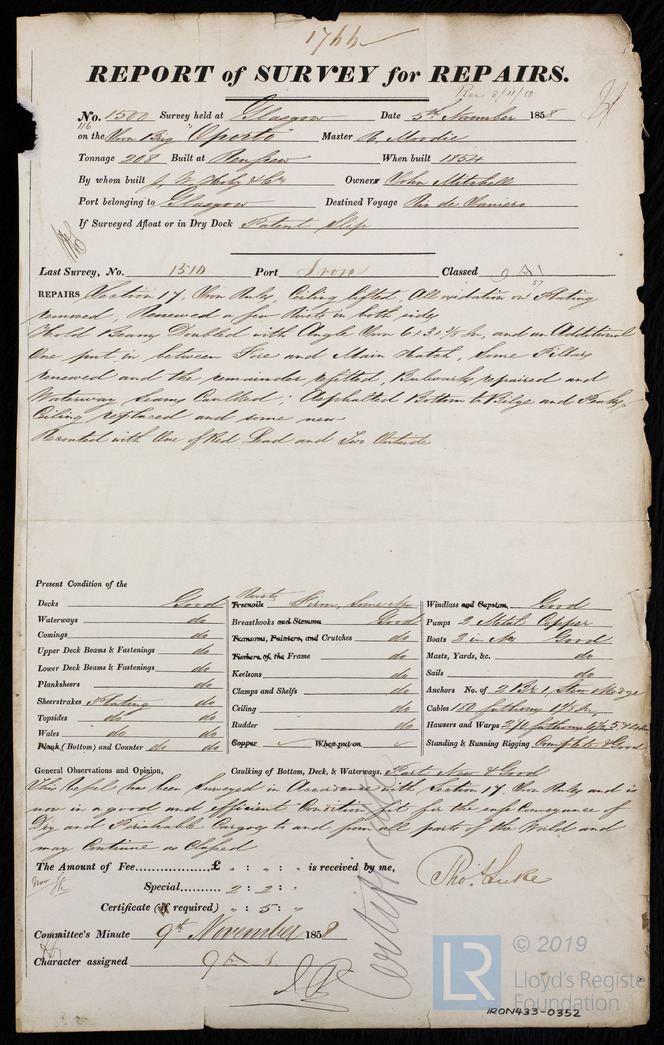 1744
REPORT of SURVEY for REPAIRS.
Rec 8/11/58
No. 1500 Survey held at Glasgow Date 5th November 1858
116
on the Iron Brig "Oporto" Master R. Moodie
Tonnage 208 Built at Renfrew When built 1854
By whom built J. W. Hoby & Co Owners John Mitchell
Port belonging to Glasgow Destined Voyage Rio de Janeiro
If Surveyed Afloat or in Dry Dock Patent Slip
Last Survey, No. 1510 Port Iron Classed 9 A 1
57
REPAIRS Section 17, Iron Rules, Ceiling lifted, All oxidation on Plating
removed, Renewed a few Rivets in both sides
Hold Beams Doubled with Angle Iron 6 x 3 x 3/8 In, and an Additional
One put in between Fore and Main Hatch, Some Pillars
renewed and the remainder refitted, Bulwarks repaired and
Waterway Seams Caulked; Asphalted Bottom to Bilge and Peaks,
Ceiling replaced and some new
Recoated with One of Red Lead and Two Outside
Present Condition of the
Decks Good
Waterways do
Comings do
Upper Deck Beams & Fastenings do
Lower Deck Beams & Fastenings do
Planksheers do
Sheerstrakes Plating do
Topsides do do
Wales do do
Plank (Bottom) and Counter do do
Rivets
Treenails Firm, Some New
Breasthooks and Stemson Good
Transoms, Pointers, and Crutches do
Timbers of the Frame do
Keelsons do
Clamps and Shelfs do
Ceiling do
Rudder do
Copper When put on
Windlass and Capstan Good
Pumps 2 Metal Copper
Boats 2 in No Good
Masts, Yards, &c. do
Sails do
Anchors No. of 2 B & 1, Stm & Kedge
Cables 180 fathoms
Hawsers and Warps
Standing & Running Rigging Complete & Good
General Observations and Opinion, Caulking of Bottom, Deck, & Waterways. Part New & Good
This Vessel has been Surveyed in Accordance with Section 17 Iron Rules and is
now in a good and efficient Condition fit for the safe Conveyance of
Dry and Perishable Cargoes to and from all parts of the World and
may Continue as Classed
The Amount of Fee £ " : " : " is received by me,
Special 2 : 2 : "
Thos. Luke
Certificate (if required) " : 5 : "
Certificate
Committee's Minute 9th November 1858
Character assigned 9 A 1
LR © 2019
Lloyd's Register
Foundation
IRON433-0352